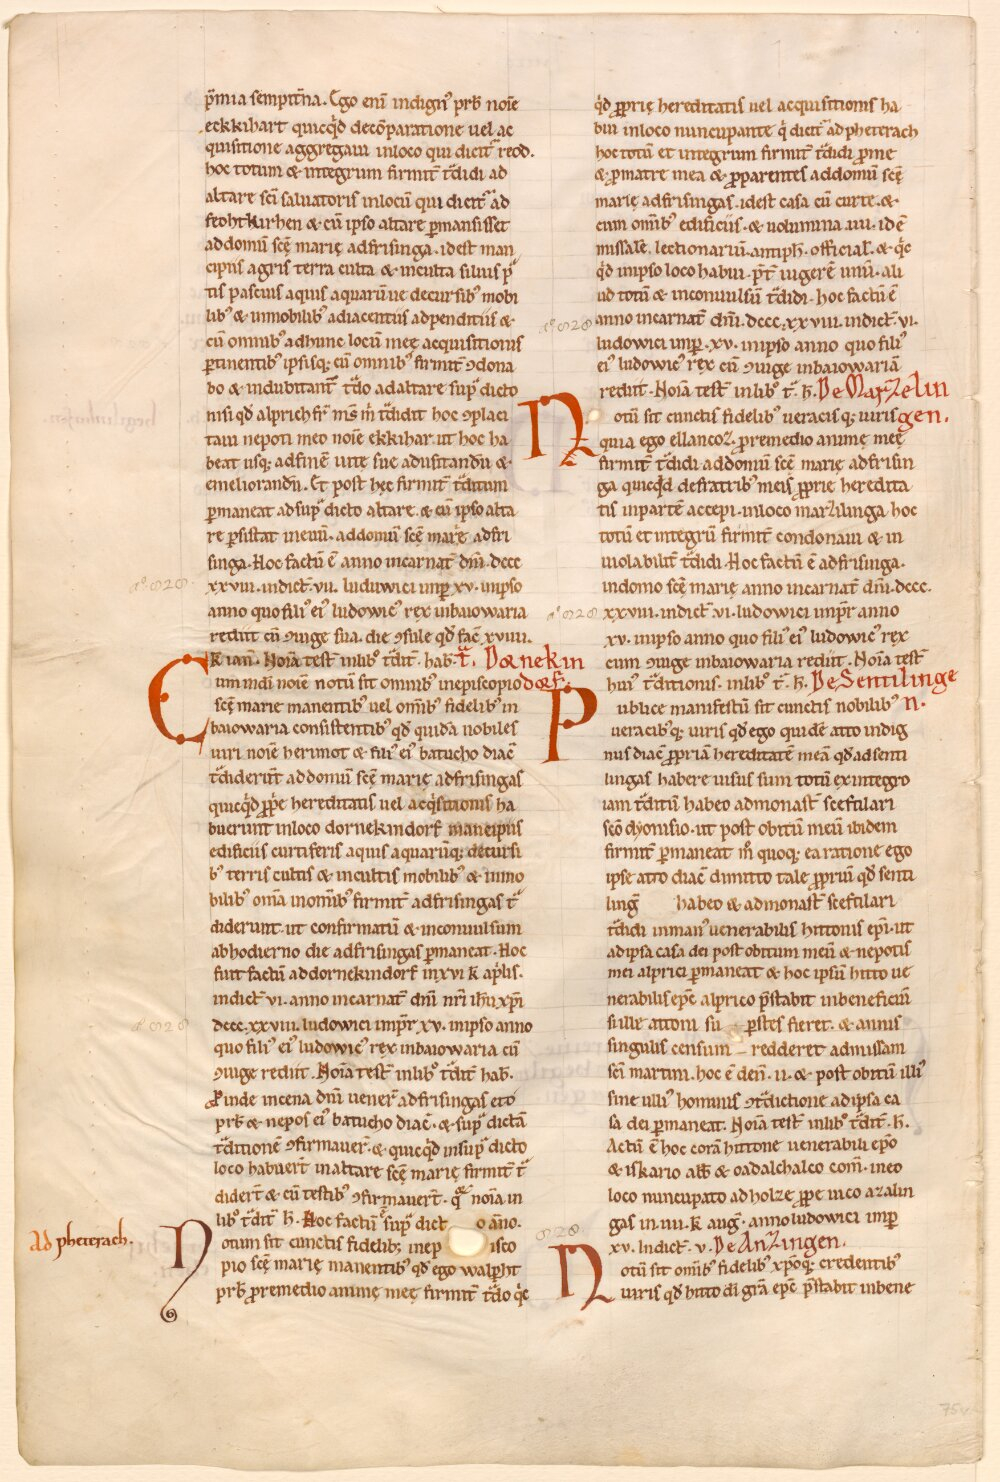 p̄mia sempit̄na. Ego enī indignꝰ prƀ noīe
eckkihart quicqͥd decōparatione uel ac
quisitione aggregaui inloco qui dicit᷑ reod.
hoc totum & integrum firmit̄ t͛didi ad
altare sc̄i saluatoris inlocū qui dicit᷑ ad
feohtkirhen & cū ipso altare ꝑmansisset
addomū scę̄ marię adfrisinga. idest man
cipiis agris terra culta & inculta siluis p͛
tis pascuis aquis aquarūue decursibꝰ mobi
libꝰ & inmobilibꝰ adiacentiis adpenditiis &
cū omnibꝰ adhunc locū meę acquisitionis
ꝑtinentibꝰ ipsisq; cū omnibꝰ firmit̄ ꝯdona
bo & indubitant᷑ t͛do adaltare sup͛ dicto
nisi qd̄ alprich fr̄ ms̄ m̄ t͛didit hoc ꝯplaci
taui nepoti meo noīe ekkihar. ut hoc ha
beat usq; adfinē uitę suę adusitandū &
emeliorandū. Et post hęc firmit̄ t͛ditum
ꝑmaneat adsup͛ dicto altare. & cū ipso alta
re ꝑsistat ineuū. addomū scę̄ marię adfri
singa. Hoc factū ē anno incarnat̄ dn̄i. dccc
xxviii. indict̄. vii. luduwici imꝑ xv. inipso
anno quo filiꝰ eiꝰ ludowicꝰ rex inbaiowaria
rediit cū ꝯiuge sua. die ꝯsule qd̄ fac̄ xviiii.
K ian̄. Noīa test̄ inlibꝰ t͛dit̄. hab̄. t͛. Dornekin
dorf.
Cum indī noīe notū sit omnibꝰ inepiscopio
scę̄ marie manentibꝰ uel om̄ibꝰ fidelibꝰ in
baiowaria consistentibꝰ qd̄ quidā nobiles
uiri noīe herimot & filiꝰ eiꝰ batucho diac̄
t͛diderūt addomū scę̄ marię adfrisingas
quicqͥd ꝓp̄e hereditatis uel acqͥsitionis ha
buerunt inloco dornekindorf mancipiis
edificiis curtiferis aquis aquarūq; decursi
bꝰ terris cultis & incultis mobilibꝰ & inmo
bilibꝰ om̄ia inom̄ibꝰ firmit̄ adfrisingas t͛
diderunt. ut confirmatū & inconuulsum
abhodierno die adfrisingas ꝑmaneat. Hoc
fuit factū addornekindorf inxvi k̄ aplis.
indict̄ vi. anno incarnat̄ dn̄i nr̄i ih̄u xp̄i
dccc. xxviii. ludowici imp͛r xv. inipso anno
quo filiꝰ eiꝰ ludowicꝰ rex inbaiowaria cū
ꝯiuge rediit. Noīa test̄ inlibꝰ t͛dit̄ hab̄.
Pinde incena dn̄i uener̄ adfrisingas eto
prƀ & nepos eiꝰ batucho diac̄. & sup͛ dictā
t͛ditionē ꝯfirmauer̄. & quicqͥd insup͛ dicto
loco habuer̄t inaltare scę̄ marię firmit̄ t͛
dider̄t & cū testibꝰ ꝯfirmauer̄t. qͦ noīa in
libꝰ t͛dit̄ h̄. Hoc factū sup͛ dict o āno.
Notum sit cunctis fidelibꝰ; inep isco
Ad pheterach.
pio scę̄ marię manentibꝰ qd̄ ego walpht
prƀ ꝓremedio animę meę firmit̄ t͛do qͥc
qͥd ꝓprię hereditatis uel acquisitionis ha
bui inloco nuncupante q̄ dicit᷑ ad pheterach
hoc totū et integrum firmit̄ t͛didi ꝓme
& ꝓmatre mea & ꝓparentes addomū scę̄
marię adfrisingas. idest casa cū curte. &
cum om̄ibꝰ edificiis. & uolumina .iiii. id ē
missale, lectionariū. antiph̄. official̄. & qͥc
qd̄ inipso loco habui. p̄t̄ iugerē unū. ali
ud totū & inconuulsū t͛didi. hoc factū ē
anno incarnat̄ dn̄i. dccc. xxviii. indict̄. vi.
ludowici imp͛. xv. inipso anno quo filiꝰ
eiꝰ ludowicꝰ rex cū ꝯiuge inbaiowariā
rediit. Noīa test̄ inlibꝰ t͛. h̄. De Marzelin
gen.
Notū sit cunctis fidelibꝰ ueracisq; uiris
quia ego ellancoz. ꝓremedio animę meę
firmit̄ t͛didi addomū scę̄ marię adfrisin
ga quicqͥd defratribꝰ meis ꝓprię heredita
tis inpartē accepi. inloco marzilinga hoc
totū et integrū firmit̄ condonaui & in
uiolabilit̄ t͛didi. Hoc factū ē adfrisinga.
indomo scę̄ marię anno incarnat̄ dn̄i. dccc.
xxviii. indict̄ vi. ludowici imp͛r anno
xv. inipso anno quo filiꝰ eiꝰ ludowicꝰ rex
cum ꝯiuge inbaiowaria rediit. Noīa test̄
huiꝰ t͛ditionis. inlibꝰ t͛. h̄. De Sentilinge
n.
Publice manifestū sit cunctis nobilibꝰ
ueracibꝰq; uiris qd̄ ego quidē atto indig
nus diac̄ ꝓpriā hereditatē meā qd̄ adsenti
lingas habere uisus sum totū exintegro
iam t͛ditū habeo admonast̄ sceftilari
sc̄o dyonisio. ut post obitū meū ibidem
firmit̄ ꝑmaneat m̄ quoq; earatione ego
ipse atto diac̄ dimitto tale ꝓpriū qd̄ senti
ling̅ habeo & admonast̄ sceftilari
t͛didi inmanꝰ uenerabilis hittonis ep̄i. ut
adipsa casa dei post obitum meū & nepotis
mei alprici ꝑmaneat & hoc ipsū hitto ue
nerabilis ep̄c alprico p̄stabit inbeneficiū
sulle attoni su ꝑstes fieret. & annis
singulis censum redderet admissam
sc̄i martini. hoc ē den̄. ii. & post obitū illiꝰ
sine ulliꝰ hominis ꝯt͛dictione adipsa ca
sa dei ꝑmaneat. Noīa test̄ inlibꝰ t͛dit̄. h̄.
Actū ē hoc corā hittone uenerabili ep̄o
& iskario abƀ & oadalchalco com̄. ineo
loco nuncupato adholze ꝓpe uico azalin
gas in.iiii. K aug̅. anno ludowici imꝑ
xv. Indict̄. v. De Anzingen.
Notū sit om̄ibꝰ fidelibꝰ xp̄oq; credentibꝰ
uiris qd̄ hitto di gr̄a ep̄c p̄stabit inbene
75v